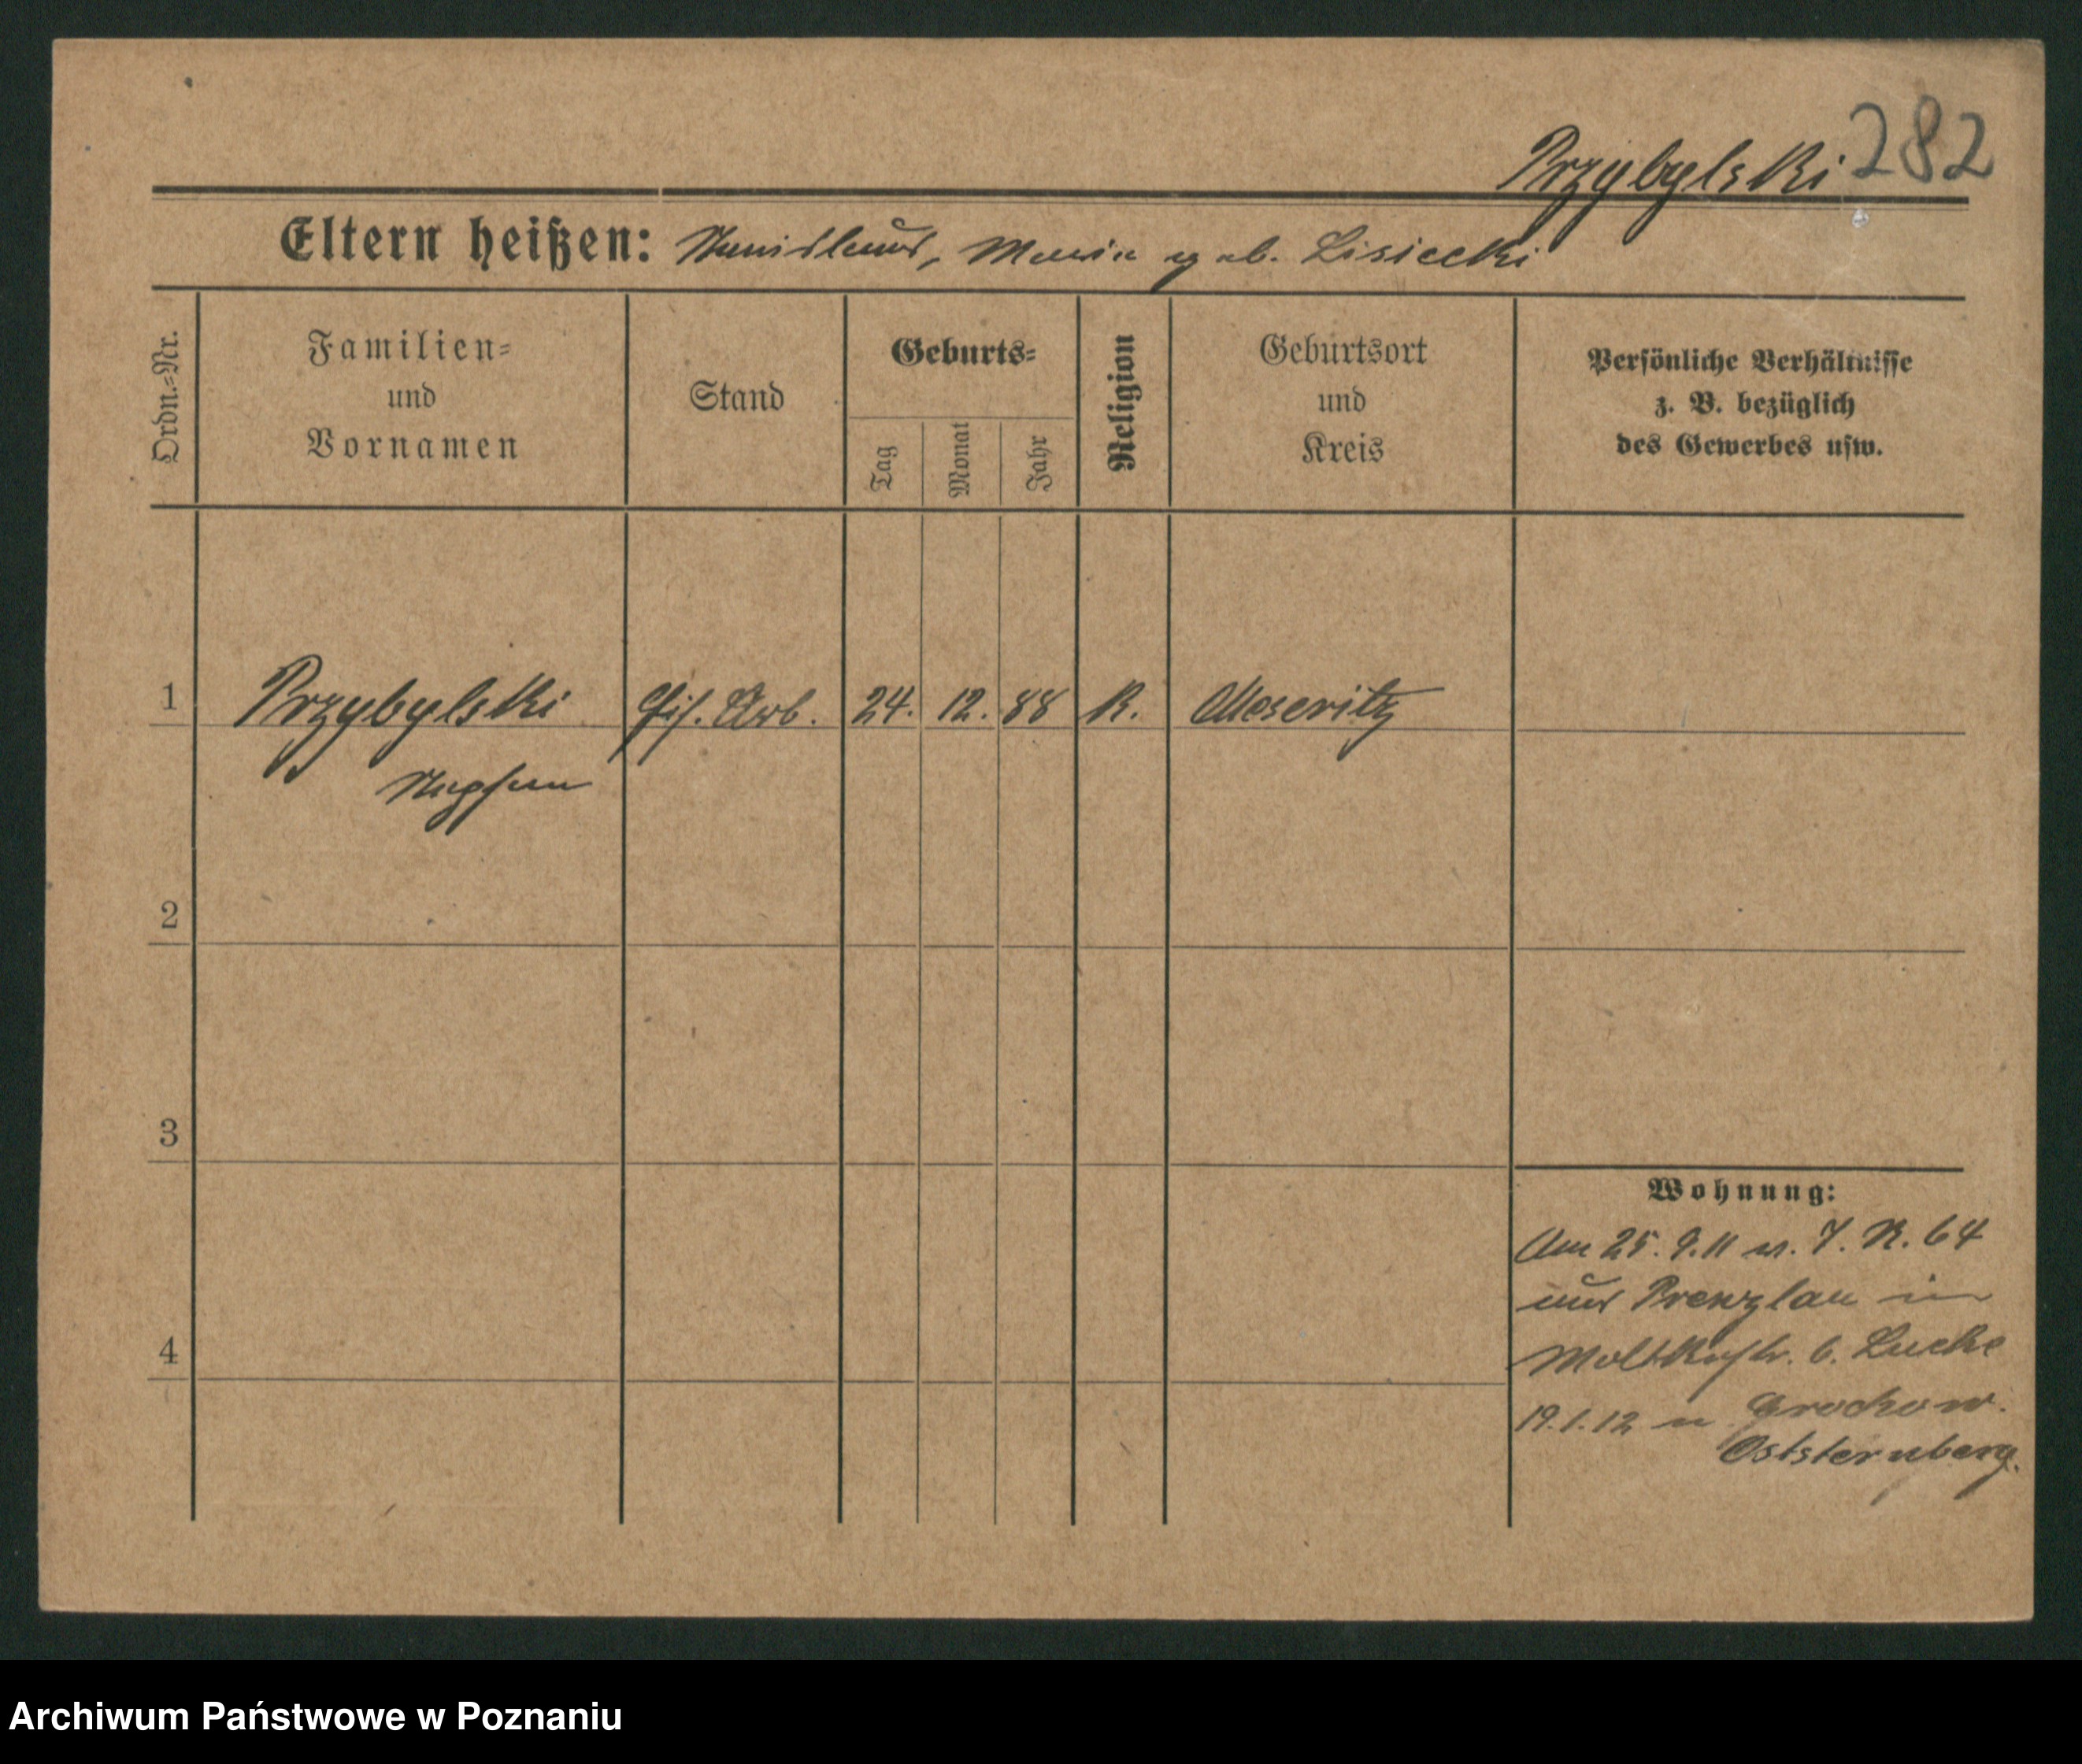 Przybylski 282
Eltern heißen: Stanislaus, Maria geb. Lisiecki
Ordn.=Nr.
Familien=
und
Vornamen
Stand
Geburts=
Tag
Monat
Jahr
Religion
Geburtsort
und
Kreis
Persönliche Verhältnisse
z. B. bezüglich
des Gewerbes usw.
1 Przybylski Eis. Arb. 24. 12. 88 K. Meseritz
Stephan
2
3
4
Wohnung:
Am 25. 9. 11 v. I. R. 64
aus Prenzlau in
Moltkestr. b. Lucke
19.1.12 n Grochow.
Oststernberg.
Archiwum Państwowe w Poznaniu